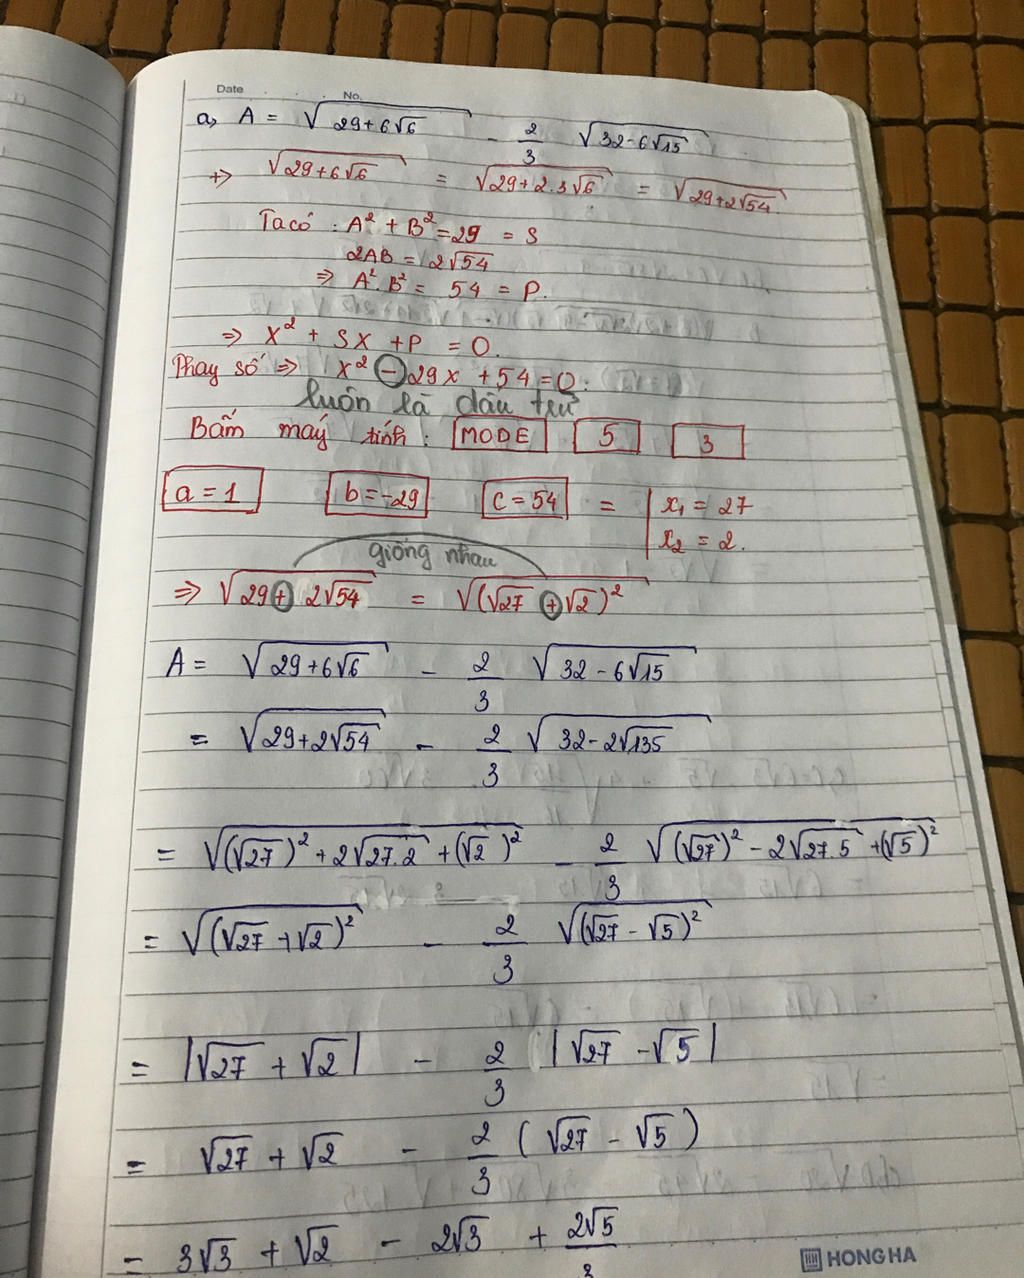 Date No.
a, A = √(29+6√6) - 2/3 √(32-6√15)
+> √(29+6√6) = √(29+2.3√6) = √(29+2√54)
Ta có : A² + B² = 29 = S
2AB = 2√54
=> A².B² = 54 = P.
=> X² + SX + P = 0.
Thay số => x² - 29x + 54 = 0.
luôn là dấu trừ
Bấm máy tính : MODE 5 3
a = 1 b = -29 c = 54 = x₁ = 27
x₂ = 2.
giống nhau
=> √(29 + 2√54) = √((√27 + √2)²)
A = √(29+6√6) - 2/3 √(32-6√15)
= √(29+2√54) - 2/3 √(32-2√135)
= √((√27)² + 2√27.2 + (√2)²) - 2/3 √((√27)² - 2√27.5 + (√5)²)
= √((√27 + √2)²) - 2/3 √((√27 - √5)²)
= |√27 + √2| - 2/3 |√27 - √5|
= √27 + √2 - 2/3 (√27 - √5)
= 3√3 + √2 - 2√3 + 2√5/3
HH HONG HA